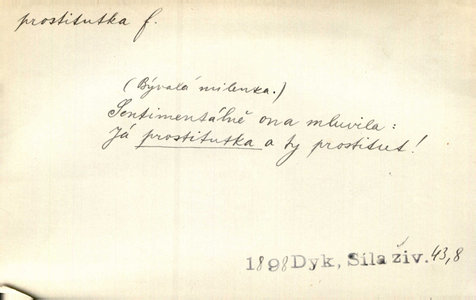 prostitutka f.
(Bývalá milenka.)
Sentimentálně ona mluvila:
Já prostitutka a ty prostitut!
1898 Dyk, Síla živ. 43,8